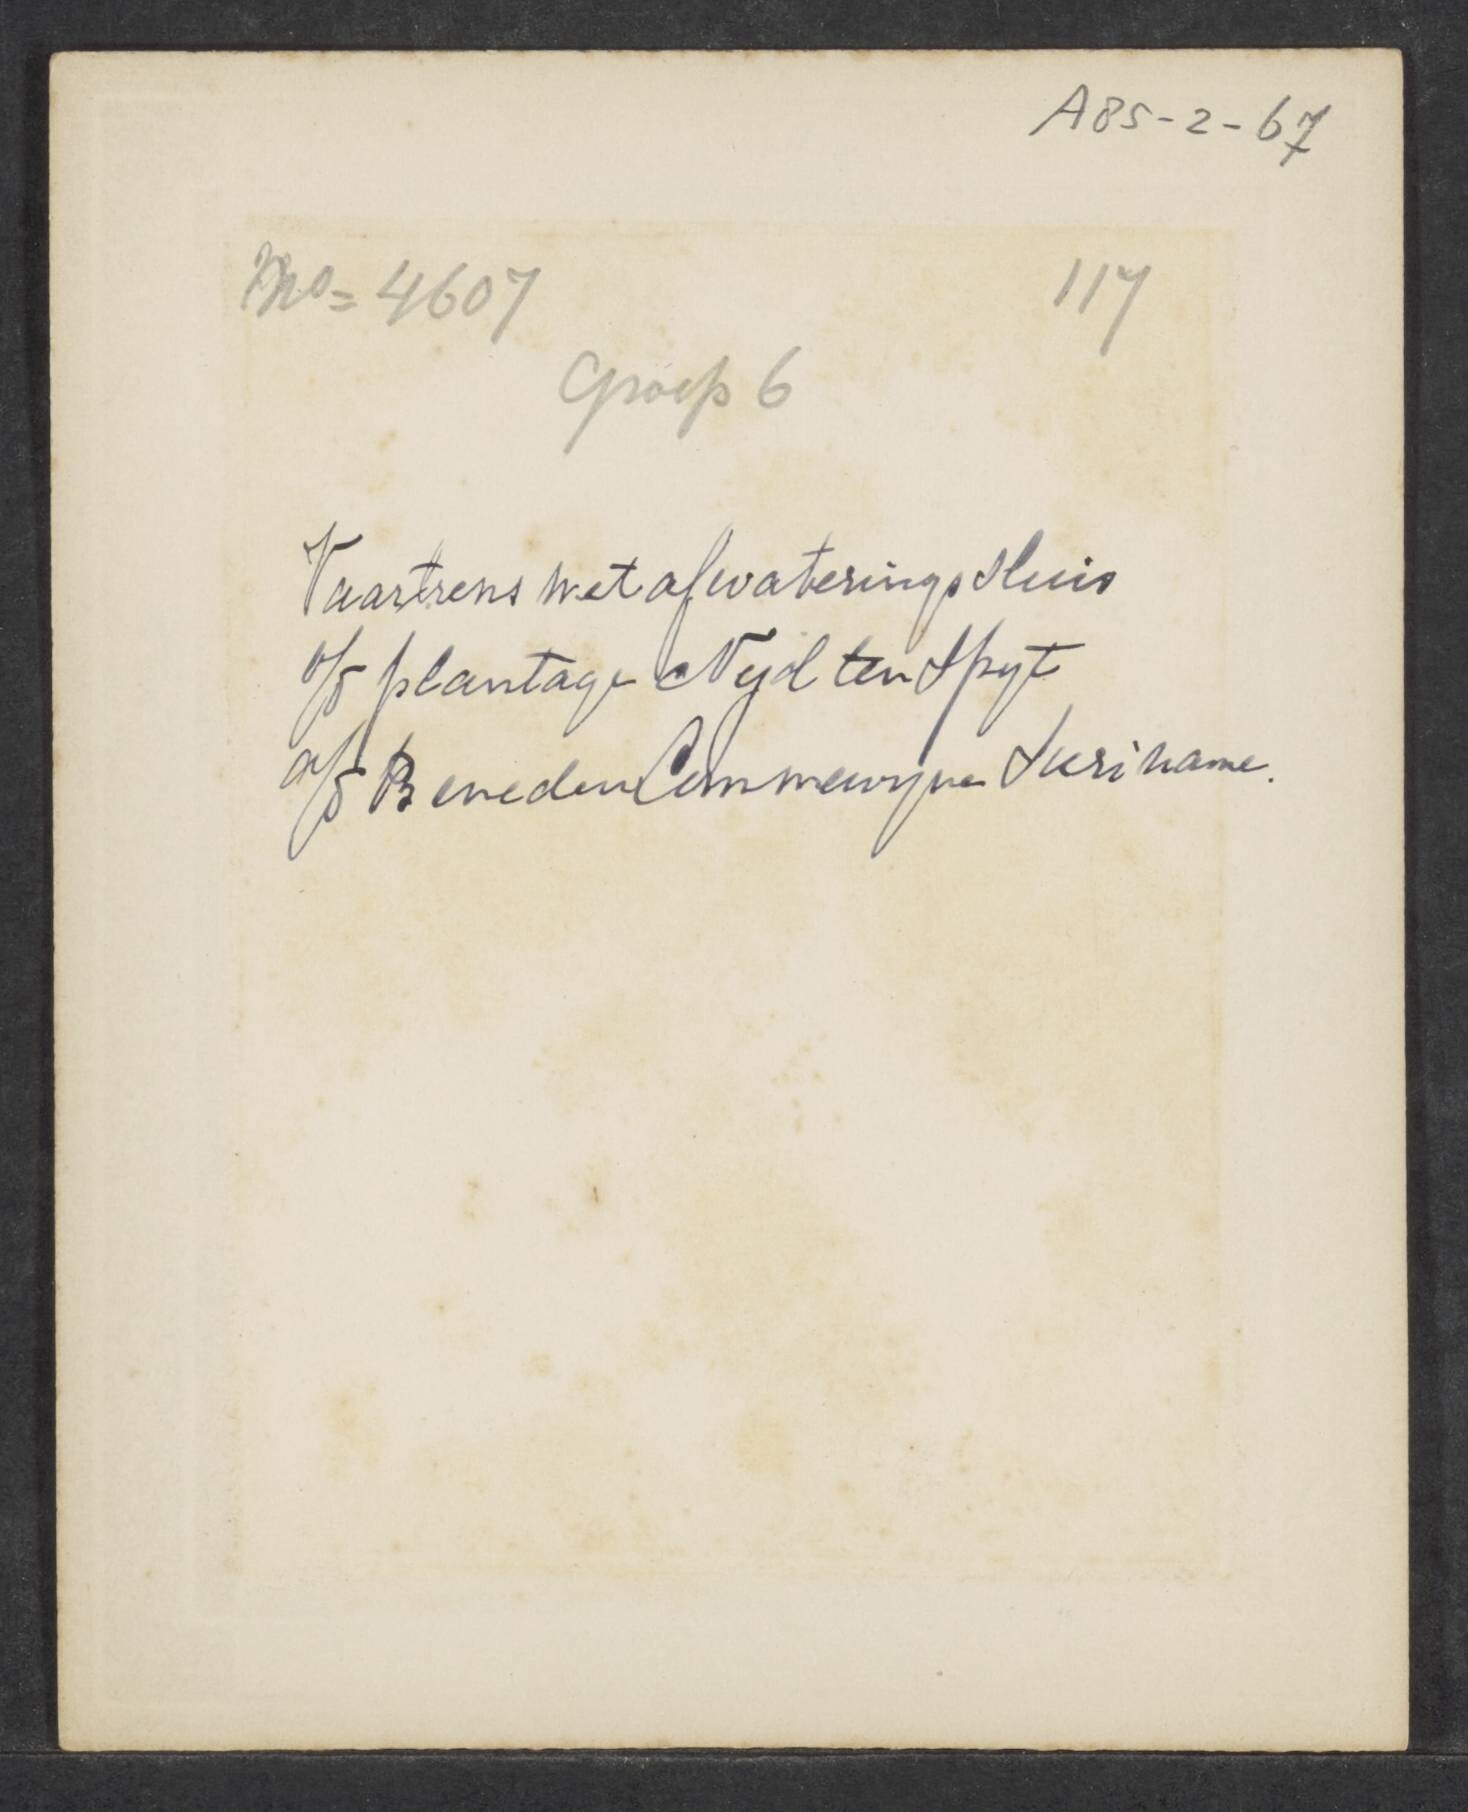 A85-2-67
No= 4607
117
Groep 6
Vaartrens met afwaterings sluis
o/d plantage Nyd ten Spyt
a/d Beneden Commewyne Suriname.